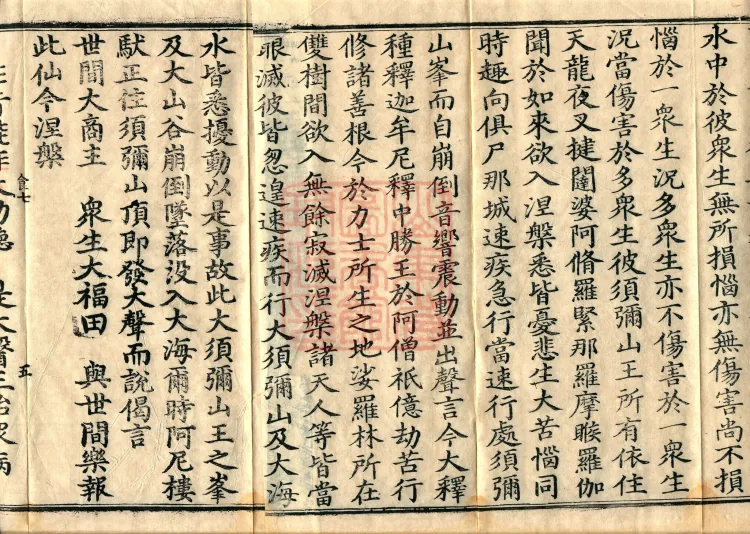 水中於彼衆生無所損惱亦無傷害尚不損
惱於一衆生況多衆生亦不傷害於一衆生
況當傷害於多衆生彼須彌山王所有依住
天龍夜叉揵闥婆阿脩羅緊那羅摩睺羅伽
聞於如來欲入涅槃悉皆憂悲生大苦惱同
時趣向俱尸那城速疾急行當速行處須彌
山峯而自崩倒音響震動並出聲言今大釋
種釋迦牟尼釋中勝王於阿僧祇億劫苦行
脩諸善根今於力士所生之地娑羅林所在
雙樹間欲入無餘寂滅涅槃諸天人等皆當
眼滅彼皆怱遑速疾而行大須彌山及大海
水皆悉擾動以是事故此大須彌山王之峯
及大山谷崩倒墜落沒入大海爾時阿尼樓
馱正住須彌山頂即發大聲而說偈言
世間大商主　衆生大福田　與世間樂報
此仙今涅槃
食七
五